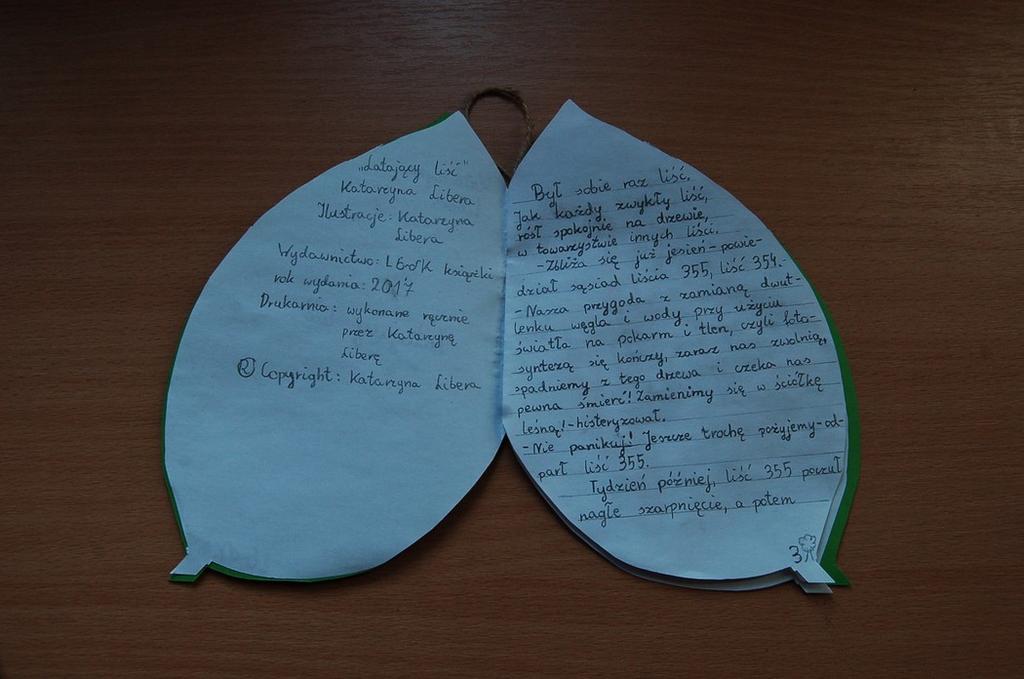 „Latający liść"
Katarzyna Libera
Ilustracje: Katarzyna
Libera
Wydawnictwo: LGrofK książki
rok wydania: 2017
Drukarnia: wykonane ręcznie
przez Katarzynę
Liberę
® Copyright: Katarzyna Libera
Był sobie raz liść.
Jak każdy zwykły liść,
rósł spokojnie na drzewie,
w towarzystwie innych liści.
-Zbliża się już jesień-powie-
dział sąsiad liścia 355, liść 354.
-Nasza przygoda z zamianą dwut-
lenku węgla i wody przy użyciu
światła na pokarm i tlen, czyli foto-
syntezą się kończy, zaraz nas zwolnią,
spadniemy z tego drzewa i czeka nas
pewna śmierć! Zamienimy się w ściółkę
leśną!-histeryzował.
-Nie panikuj! Jeszcze trochę pożyjemy-od-
parł liść 355.
Tydzień później, liść 355 poczuł
nagłe szarpnięcie, a potem
3